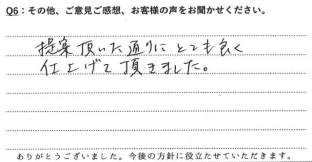 Q6：その他、ご意見ご感想、お客様の声をお聞かせください。
提案頂いた通りにとても良く
仕上げて頂きました。
ありがとうございました。今後の方針に役立たせていただきます。